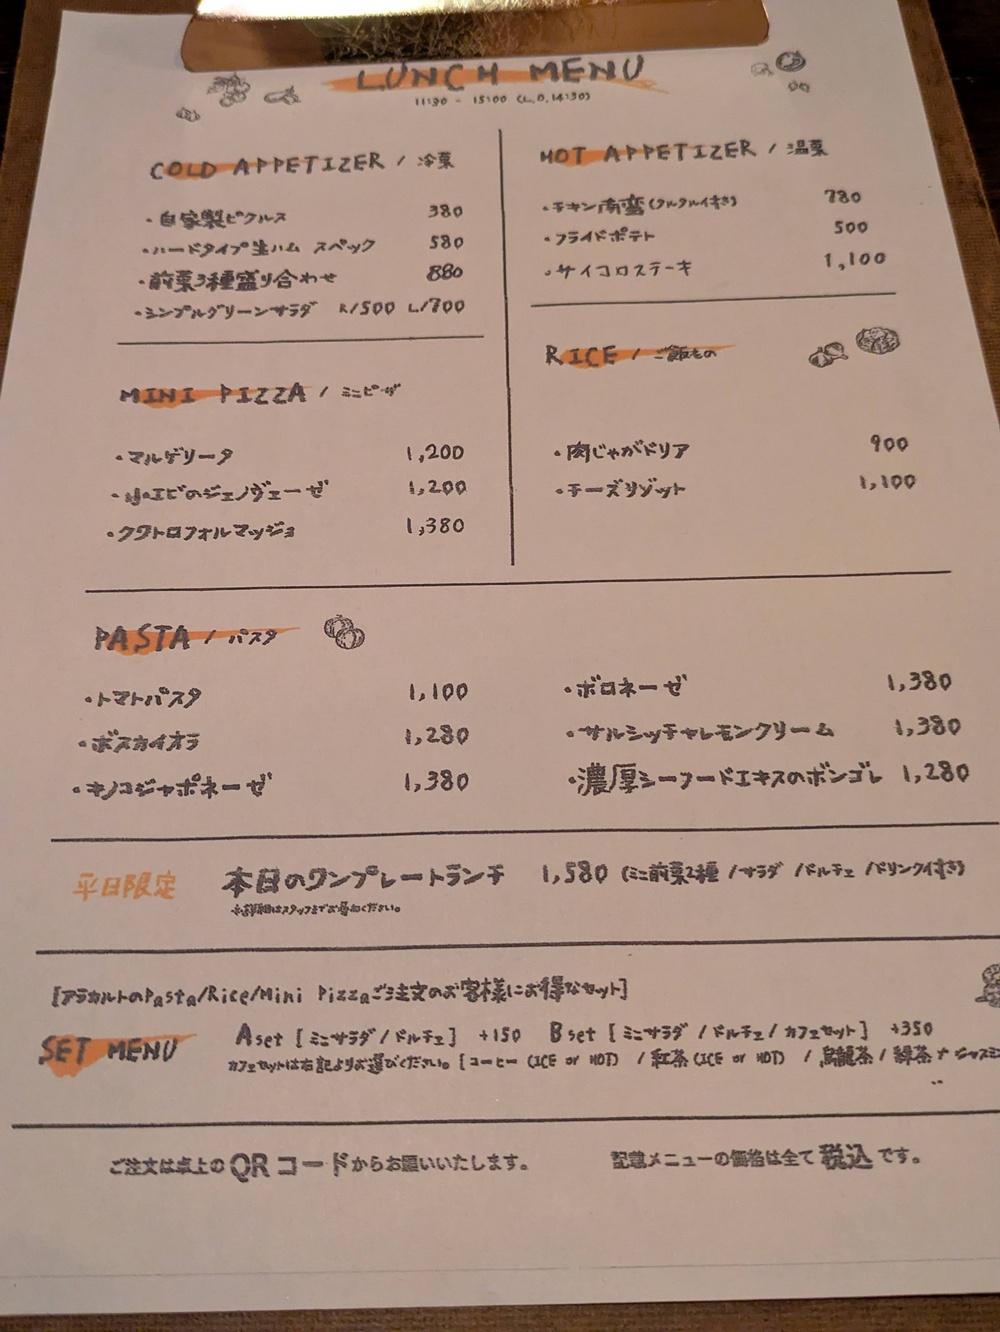 LUNCH MENU
11:30 - 15:00 (L.O.14:30)
COLD APPETIZER / 冷菜
・自家製ピクルス 380
・ハードタイプ生ハム スペック 580
・前菜3種盛り合わせ 880
・シンプルグリーンサラダ R/500 L/700
HOT APPETIZER / 温菜
・チキン南蛮(タルタル付き) 780
・フライドポテト 500
・サイコロステーキ 1,100
MINI PIZZA / ミニピザ
・マルゲリータ 1,200
・小エビのジェノヴェーゼ 1,200
・クワトロフォルマッジョ 1,380
RICE / ご飯もの
・肉じゃがドリア 900
・チーズリゾット 1,100
PASTA / パスタ
・トマトパスタ 1,100
・ボスカイオラ 1,280
・キノコジャポネーゼ 1,380
・ボロネーゼ 1,380
・サルシッチャレモンクリーム 1,380
・濃厚シーフードエキスのボンゴレ 1,280
平日限定 本日のワンプレートランチ 1,580 (ミニ前菜2種 /サラダ /ドルチェ /ドリンク付き)
※詳細はスタッフまでお尋ねください。
[アラカルトのPasta/Rice/Mini Pizzaご注文のお客様にお得なセット]
SET MENU
A set [ミニサラダ/ドルチェ] +150 B set [ミニサラダ /ドルチェ/カフェセット] +350
カフェセットは右記よりお選びください。[コーヒー (ICE or HOT) /紅茶 (ICE or HOT) /烏龍茶/緑茶
ご注文は卓上のQRコードからお願いいたします。 記載メニューの価格は全て税込です。